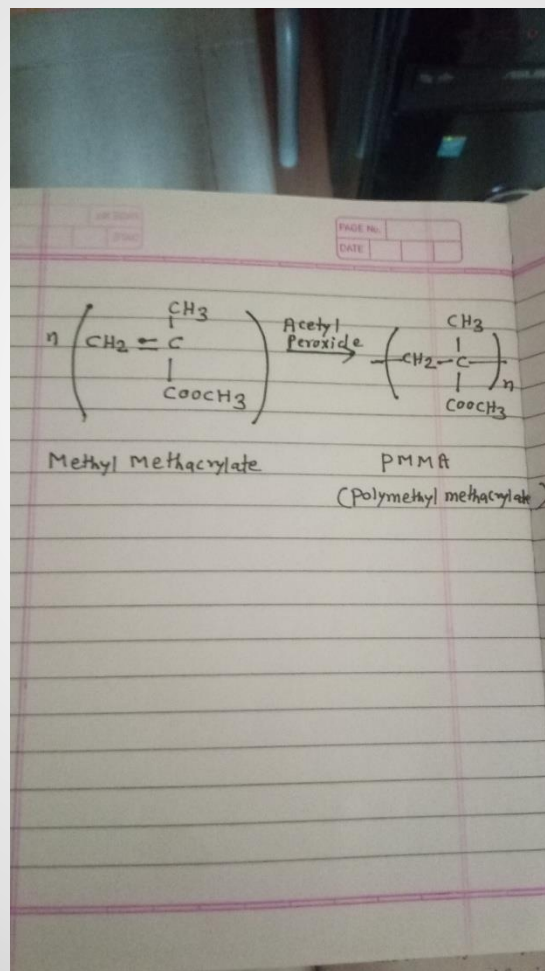 PAGE No.
DATE
CH3
n ( CH2 = C )
COOCH3
Acetyl
Peroxide
CH3
( CH2 - C )n
COOCH3
Methyl Methacrylate
PMMA
(Polymethyl methacrylate)